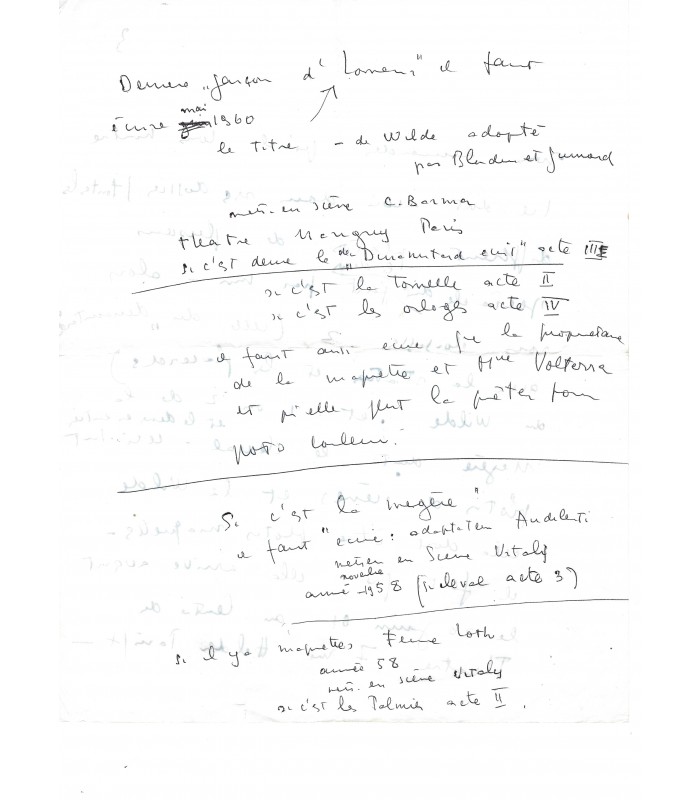 Derriere „garçon d'honneur" il faut
écrire mai 1960
le titre - de Wilde adapté
par Blondin et Guimard
mise en scène C. Barma
theatre Marigny Paris
si c'est le acte III
si c'est la Tonnelle acte II
si c'est les orloges acte IV
il faut aussi ecrire que la propriétaire
de la maquette est Mme Volterra
et qu'elle peut la prêter pour
photo couleur.
Si c'est la megère "
il faut " ecrire : adaptation Audiberti
mise en Scène Vitaly
novembre
année 1958 (si cheval acte 3)
si il y a maquettes Femme Loth
année 58
mise en scène Vitaly
si c'est les Palmier acte II.